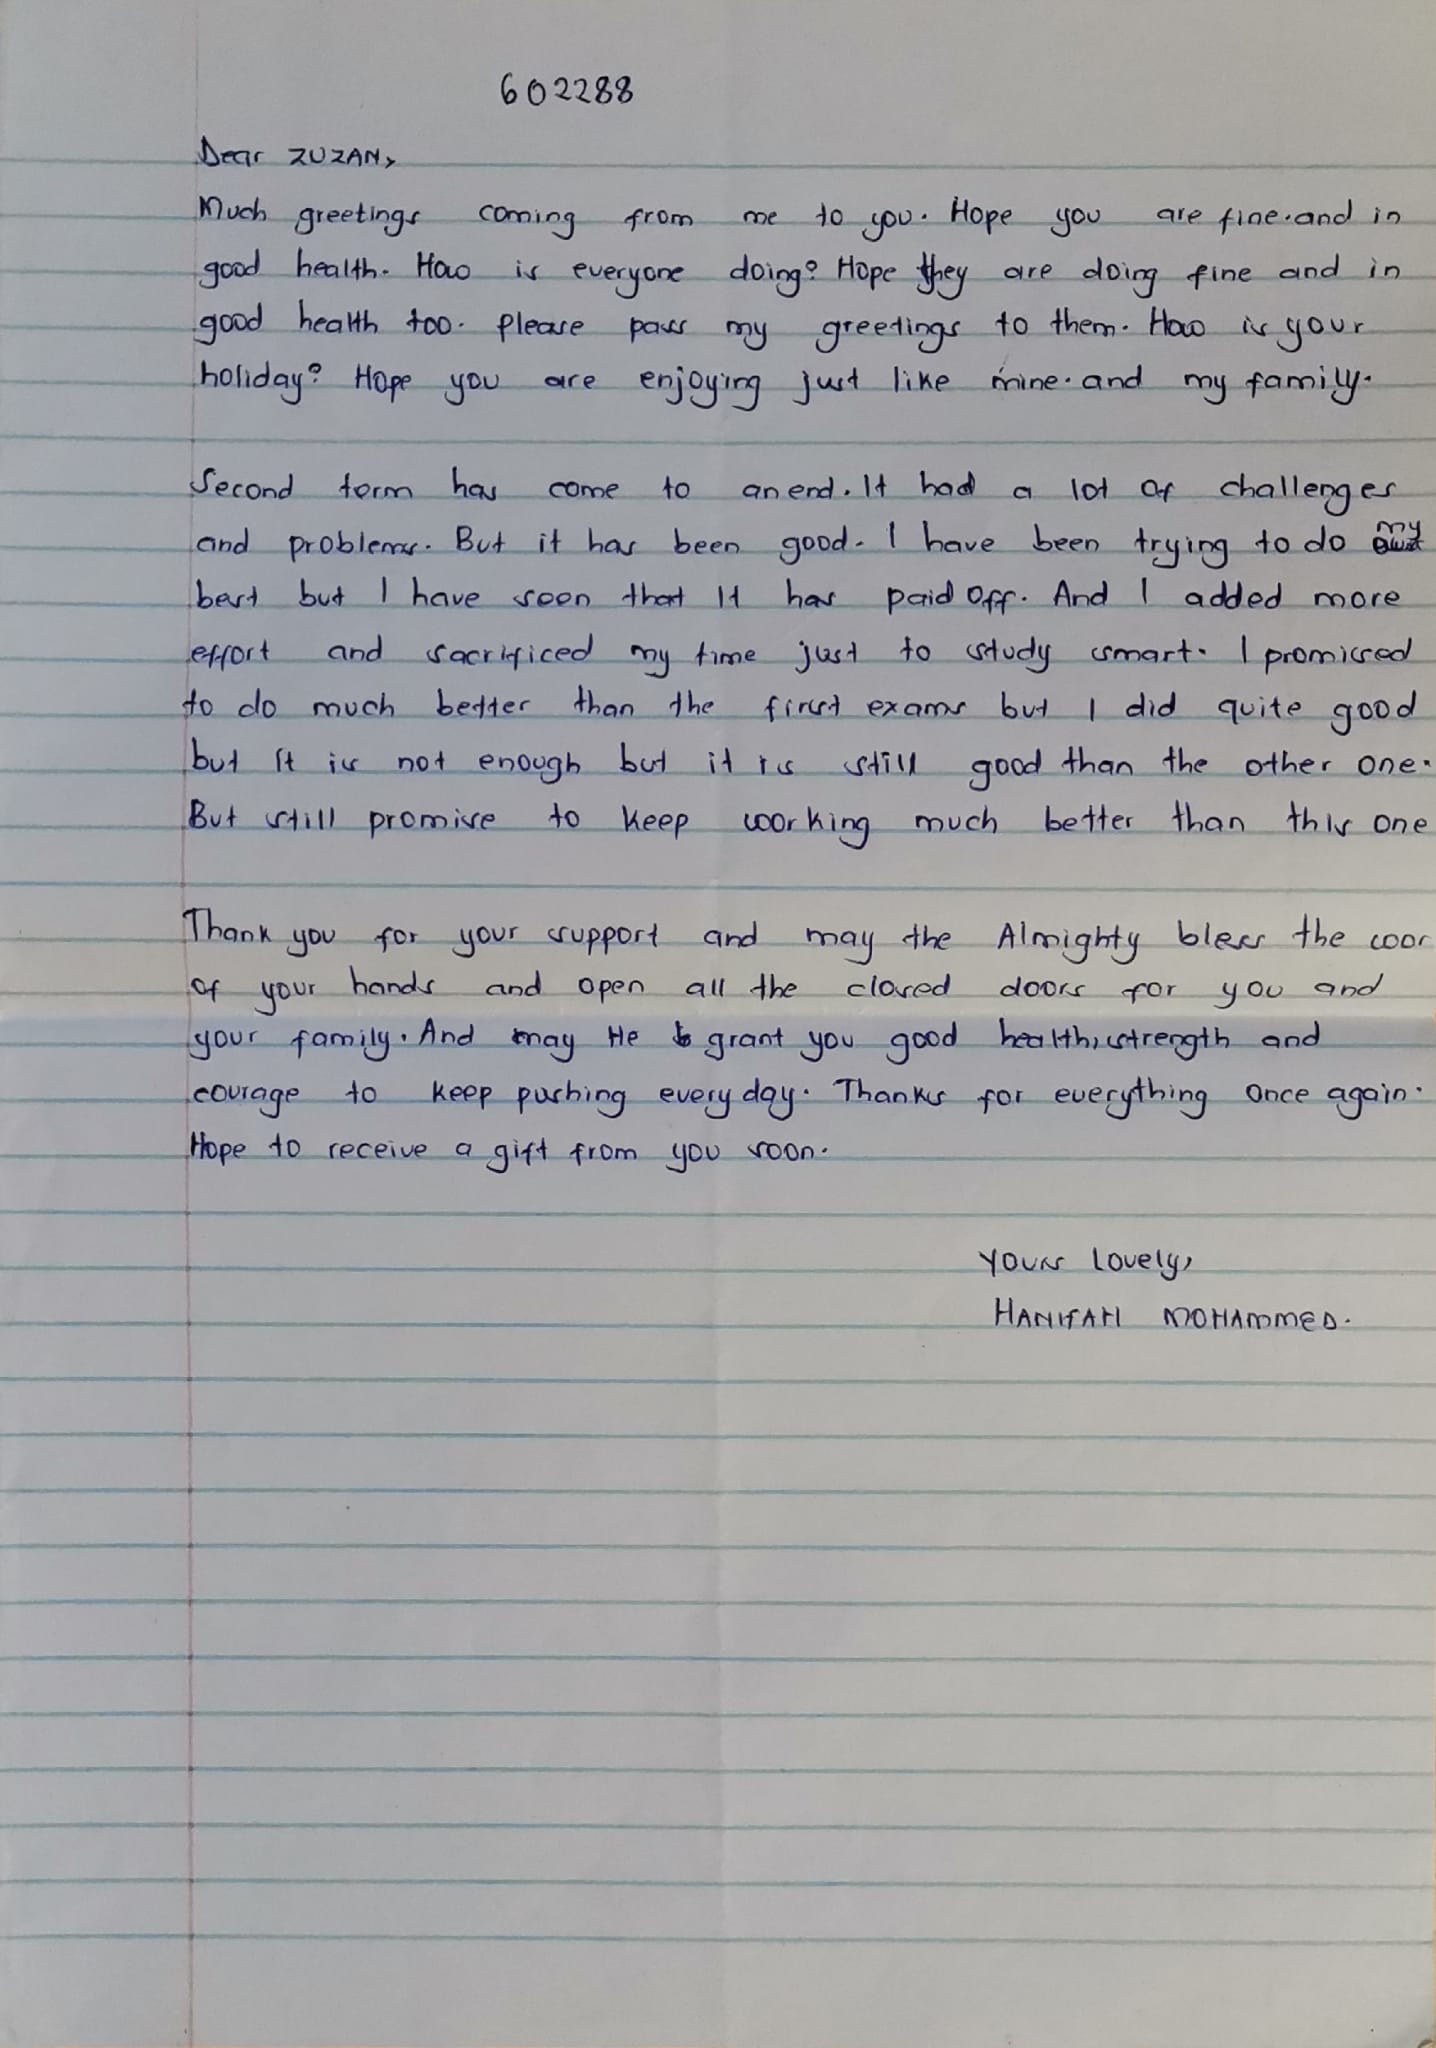 602288
Dear ZUZAN,
Much greetings coming from me to you. Hope you are fine.and in
good health. How is everyone doing? Hope they are doing fine and in
good health too. Please pass my greetings to them. How is your
holiday? Hope you are enjoying just like mine.and my family.
Second term has come to an end. It had a lot of challenges
and problems. But it has been good. I have been trying to do my
best but I have seen that It has paid off. And I added more
effort and sacrificed my time just to study smart. I promissed
to do much better than the first exams but I did quite good
but It is not enough but it is still good than the other one.
But still promise to keep working much better than this one
Thank you for your support and may the Almighty bless the wor
of your hands and open all the closed doors for you and
your family. And may He grant you good health, strength and
courage to keep pushing every day. Thanks for everything once again.
Hope to receive a gift from you soon.
Yours lovely,
HANIFAH MOHAMMED.